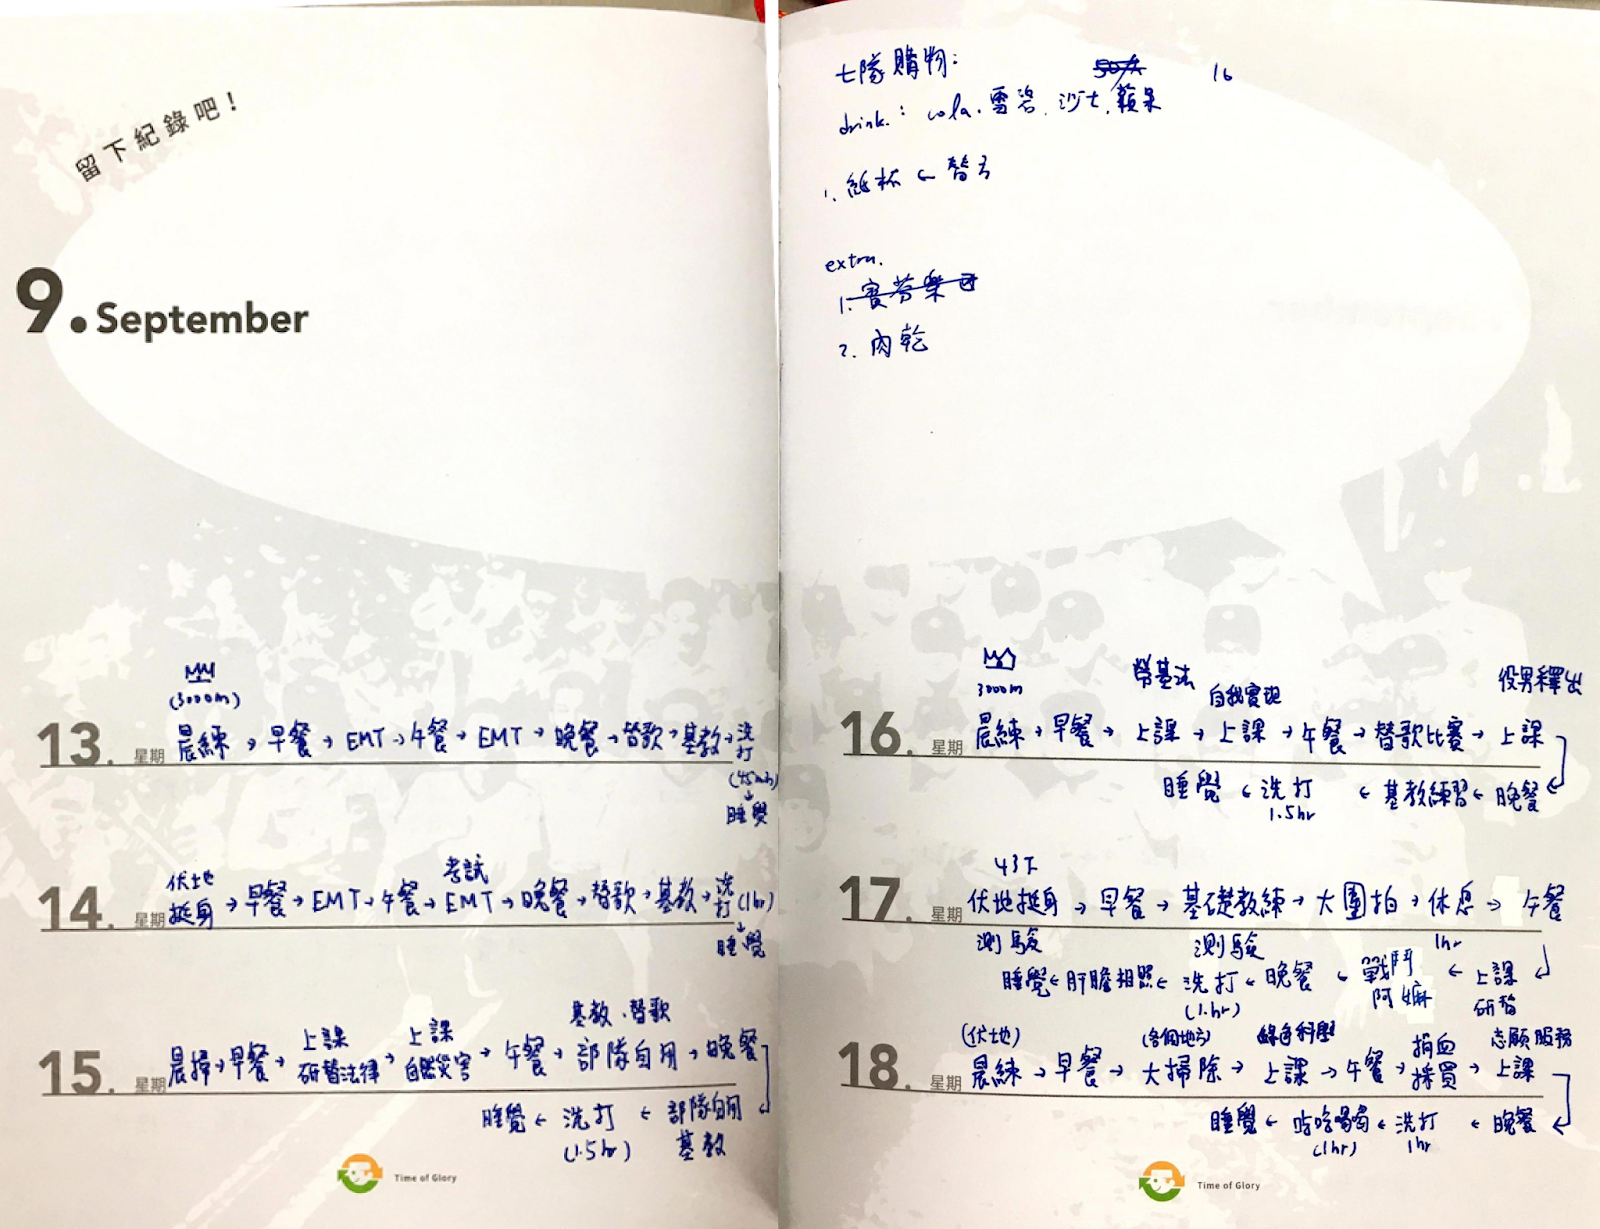 留下紀錄吧！
9. September
(3000m)
13. 星期 晨練→早餐→EMT→午餐→EMT→晚餐→替歌→基教→洗打
(45min)
睡覺
考試
14. 星期 伏地挺身→早餐→EMT→午餐→EMT→晚餐→替歌→基教→洗打(1hr)
睡覺
上課 上課 基教、替歌
15. 星期 晨掃→早餐→研替法律→自然災害→午餐→部隊自用→晚餐
睡覺←洗打←部隊自用
(1.5hr) 基教
Time of Glory
七隊購物： 16
drink.: cola.雪碧.沙士.蘋果
1. 紙杯←
extra.
1.
2. 肉乾
3000m 勞基法 自我實現 役男釋出
16. 星期 晨練→早餐→上課→上課→午餐→替歌比賽→上課
睡覺←洗打←基教練習←晚餐
1.5hr
43下
17. 星期 伏地挺身→早餐→基礎教練→大團拍→休息→午餐
測驗 測驗 1hr
睡覺←肝膽相照←洗打←晚餐←戰鬥阿嬤←上課
(1.hr) 研替
(伏地) (各個地方) 綠色科學 捐血 志願服務
18. 星期 晨練→早餐→大掃除→上課→午餐→採買→上課
睡覺←吃吃喝喝←洗打←晚餐
(1hr) 1hr
Time of Glory